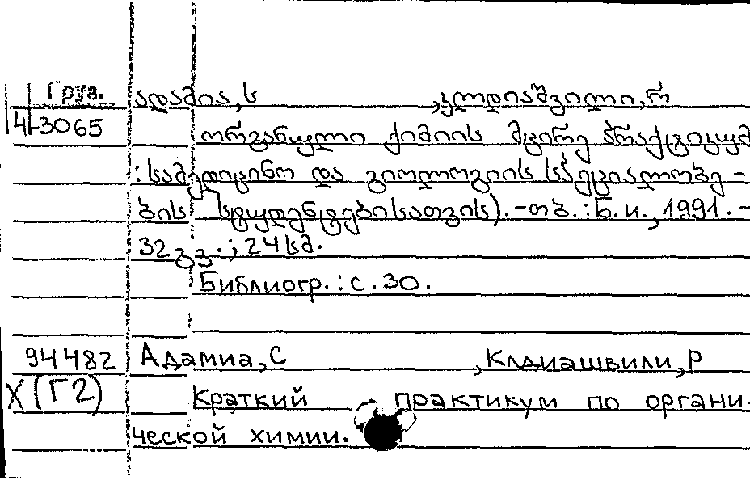 Груз. ადამია, ს , კლდიაშვილი, რ
4-3065 ორგანული ქიმიის მცირე პრაქტიკუმ
: სამედიცინო და ბიოლოგიის სპეციალობე-
ბის სტუდენტებისათვის). - თბ. : Б. и., 1991. -
32 გვ. ; 24 სმ.
Библиогр. : с. 30.
94482 Адамиа, С , Клдиашвили, Р
X (Г2) Краткий практикум по органи-
ческой химии.